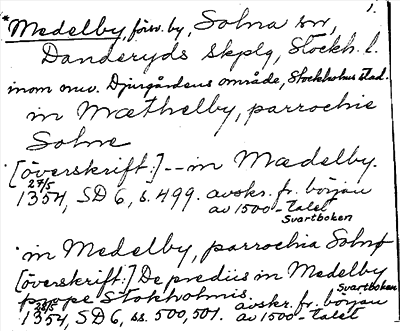 1.
*Medelby, förv. by, Solna sn,
Danderyds skplg, Stockh. l.
inom nuv. Djurgårdens område, Stockholms stad.
in Mæthelby, parrochie
Solne
[överskrift:]--in Mædelby.
27/5 1354, SD 6, s. 499. avskr. fr. början
av 1500-talet
Svartboken
in Medelby, parrochia Soln
[överskrift:] De prediis in Medelby
prope Stokholmis. Svartboken
28/5 1354, SD 6, ss. 500, 501. avskr. fr. början
av 1500-talet